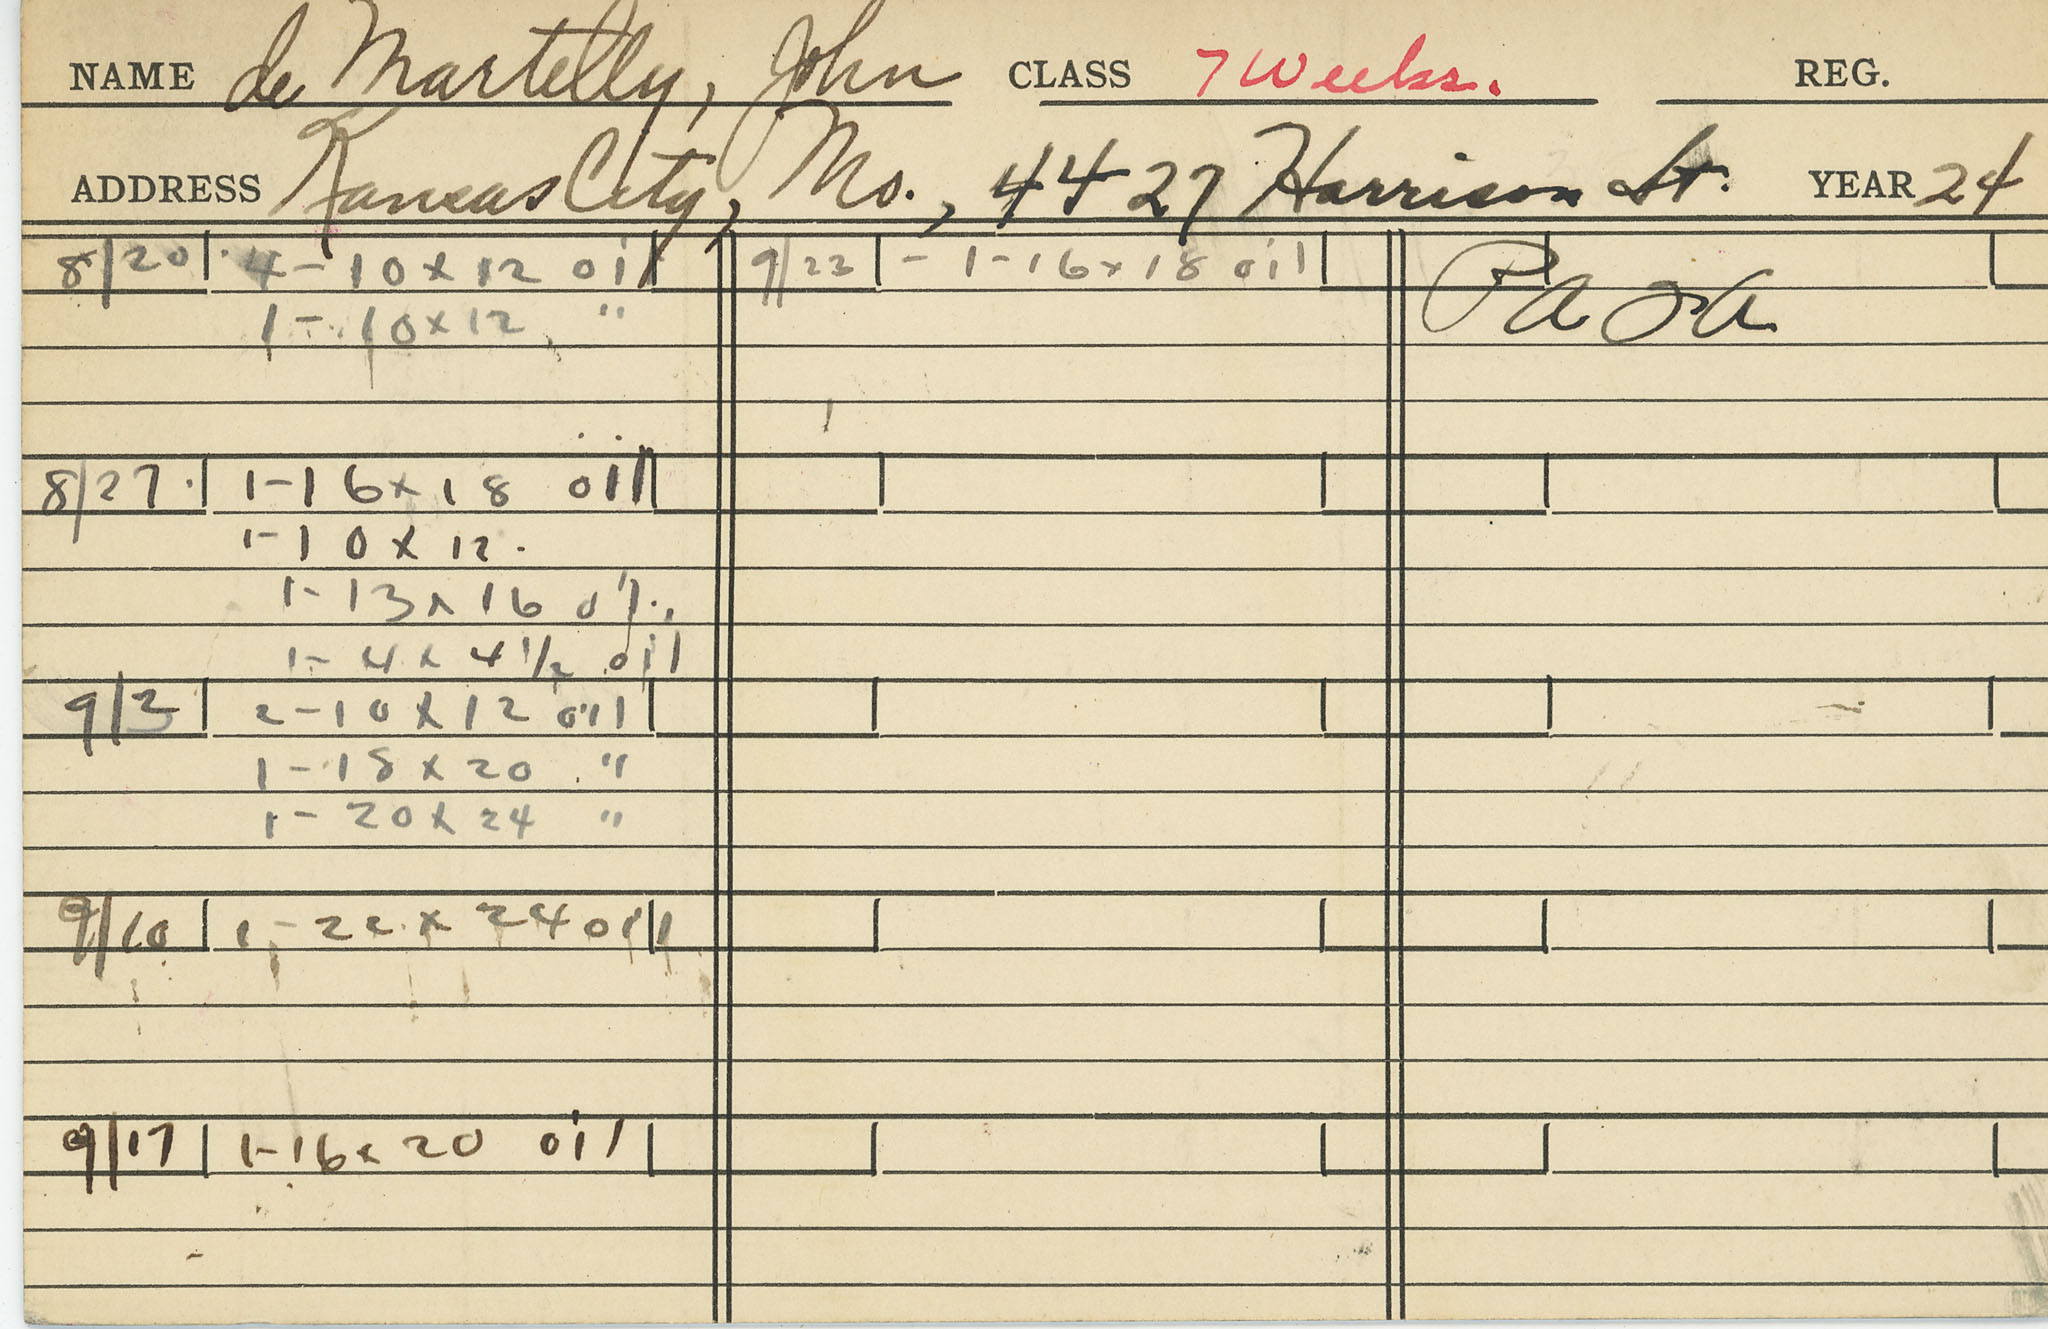 NAME de Martelly, John CLASS 7 Weeks. REG.
ADDRESS Kansas City, Mo., 4427 Harrison St. YEAR 24
8/20 4-10x12 oil
1-10x12 "
8/27 1-16x18 oil
1-10x12.
1-13x16 oil
1-4x4 1/2 oil
9/3 2-10x12 oil
1-18x20 "
1-20x24 "
9/10 1-22x24 oil
9/17 1-16x20 oil
9/23 - 1-16x18 oil